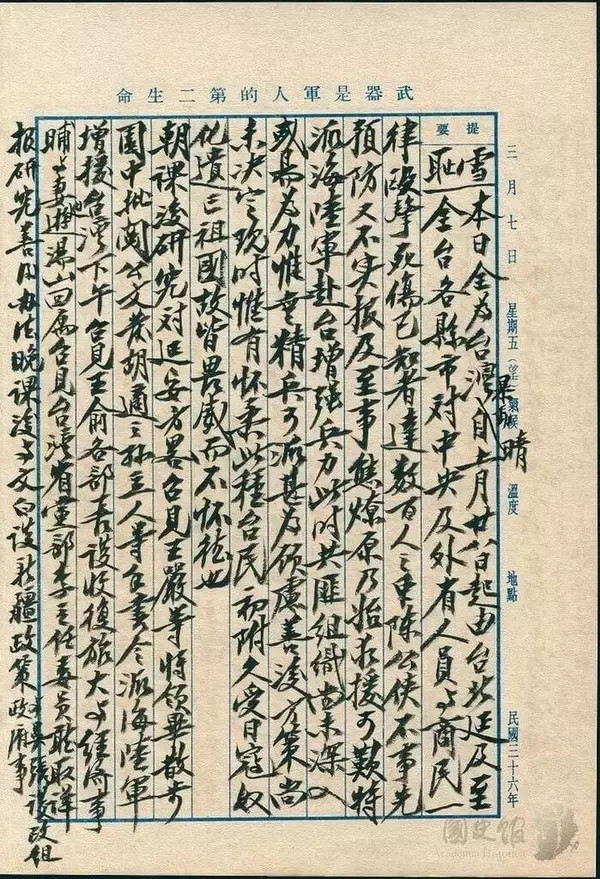 武器是軍人的第二生命
三月七日 星期五（望） 氣候 晴 溫度 地點 民國三十六年
提要
雪 本日全為台灣暴動自上月廿八日起由台北延及至
耻 全台各縣市對中央及外省人員与商民一
律毆擊死傷已知者達數百人之眾陳公俠不事先
預防又不实报及至事態燎原乃始求援可歎特
派海陸軍赴台增強兵力此時共匪組織尚未深入
或易為力惟無精兵可派甚為顧慮善後方策尚
未決定之現時惟有怀柔此種台民初附久受日寇奴
化遺亡祖國故皆畏威而不怀德也
朝課後研究对延安方畧召見王嚴等將領畢散步
園中批閱公文 胡適之孫立人等各書令派海陸軍
增援台灣下午召見王俞各部長談收復旅大与經濟事
晡与妻遊湯山回寓召見台灣省黨部李主任委員聽取詳
报研究善後办法晚課後与文白談新疆政策 談改組政府事